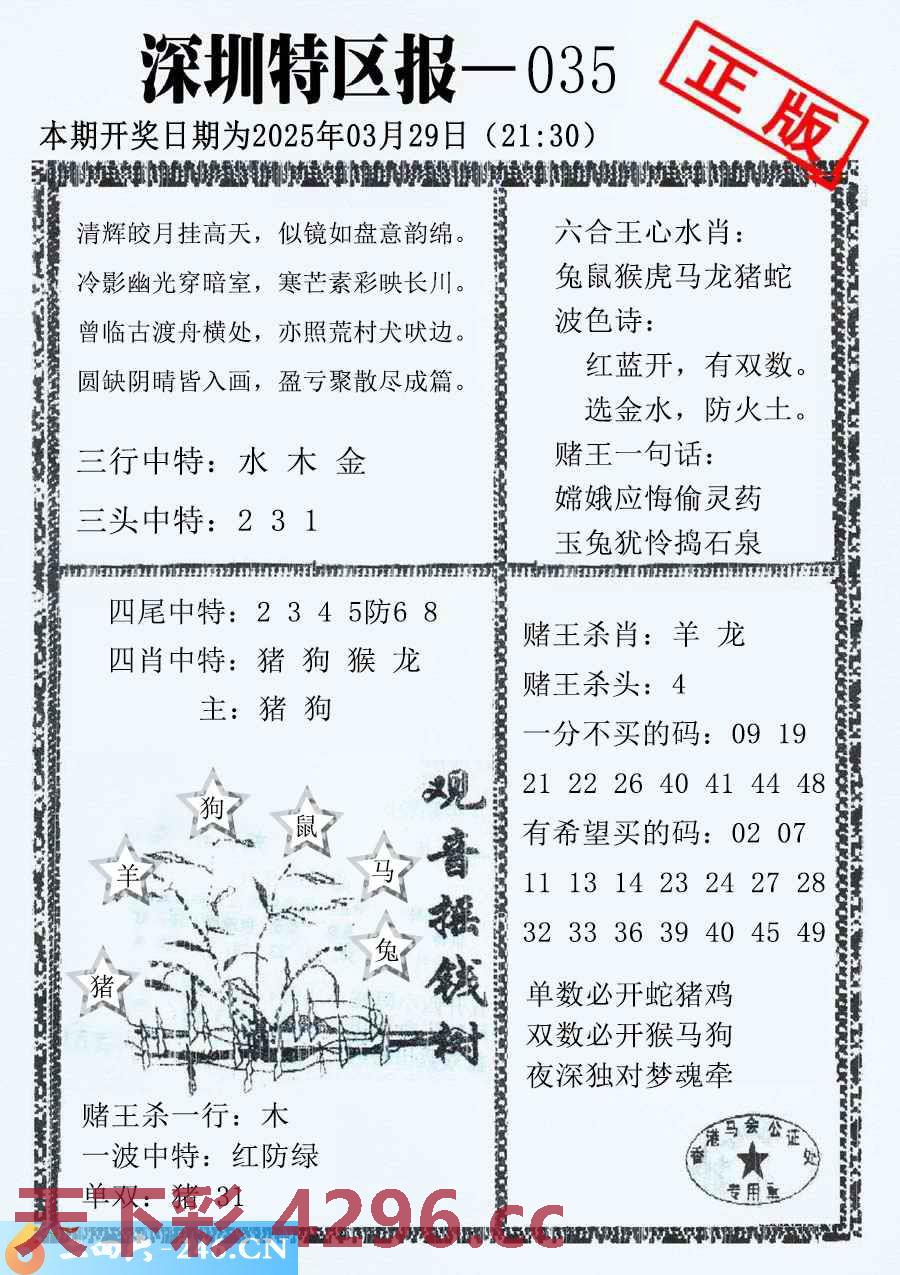 深圳特区报—035
正版
本期开奖日期为2025年03月29日（21:30）
清辉皎月挂高天，似镜如盘意韵绵。
冷影幽光穿暗室，寒芒素彩映长川。
曾临古渡舟横处，亦照荒村犬吠边。
圆缺阴晴皆入画，盈亏聚散尽成篇。
三行中特：水 木 金
三头中特：2 3 1
六合王心水肖：
兔鼠猴虎马龙猪蛇
波色诗：
红蓝开，有双数。
选金水，防火土。
赌王一句话：
嫦娥应悔偷灵药
玉兔犹怜捣石泉
四尾中特：2 3 4 5防6 8
四肖中特：猪 狗 猴 龙
主：猪 狗
狗
鼠
羊
马
兔
猪
观音摇钱树
赌王杀一行：木
一波中特：红防绿
单双：猪 31
赌王杀肖：羊 龙
赌王杀头：4
一分不买的码：09 19
21 22 26 40 41 44 48
有希望买的码：02 07
11 13 14 23 24 27 28
32 33 36 39 40 45 49
单数必开蛇猪鸡
双数必开猴马狗
夜深独对梦魂牵
香港马会公证处
专用章
天下彩 4296.cc